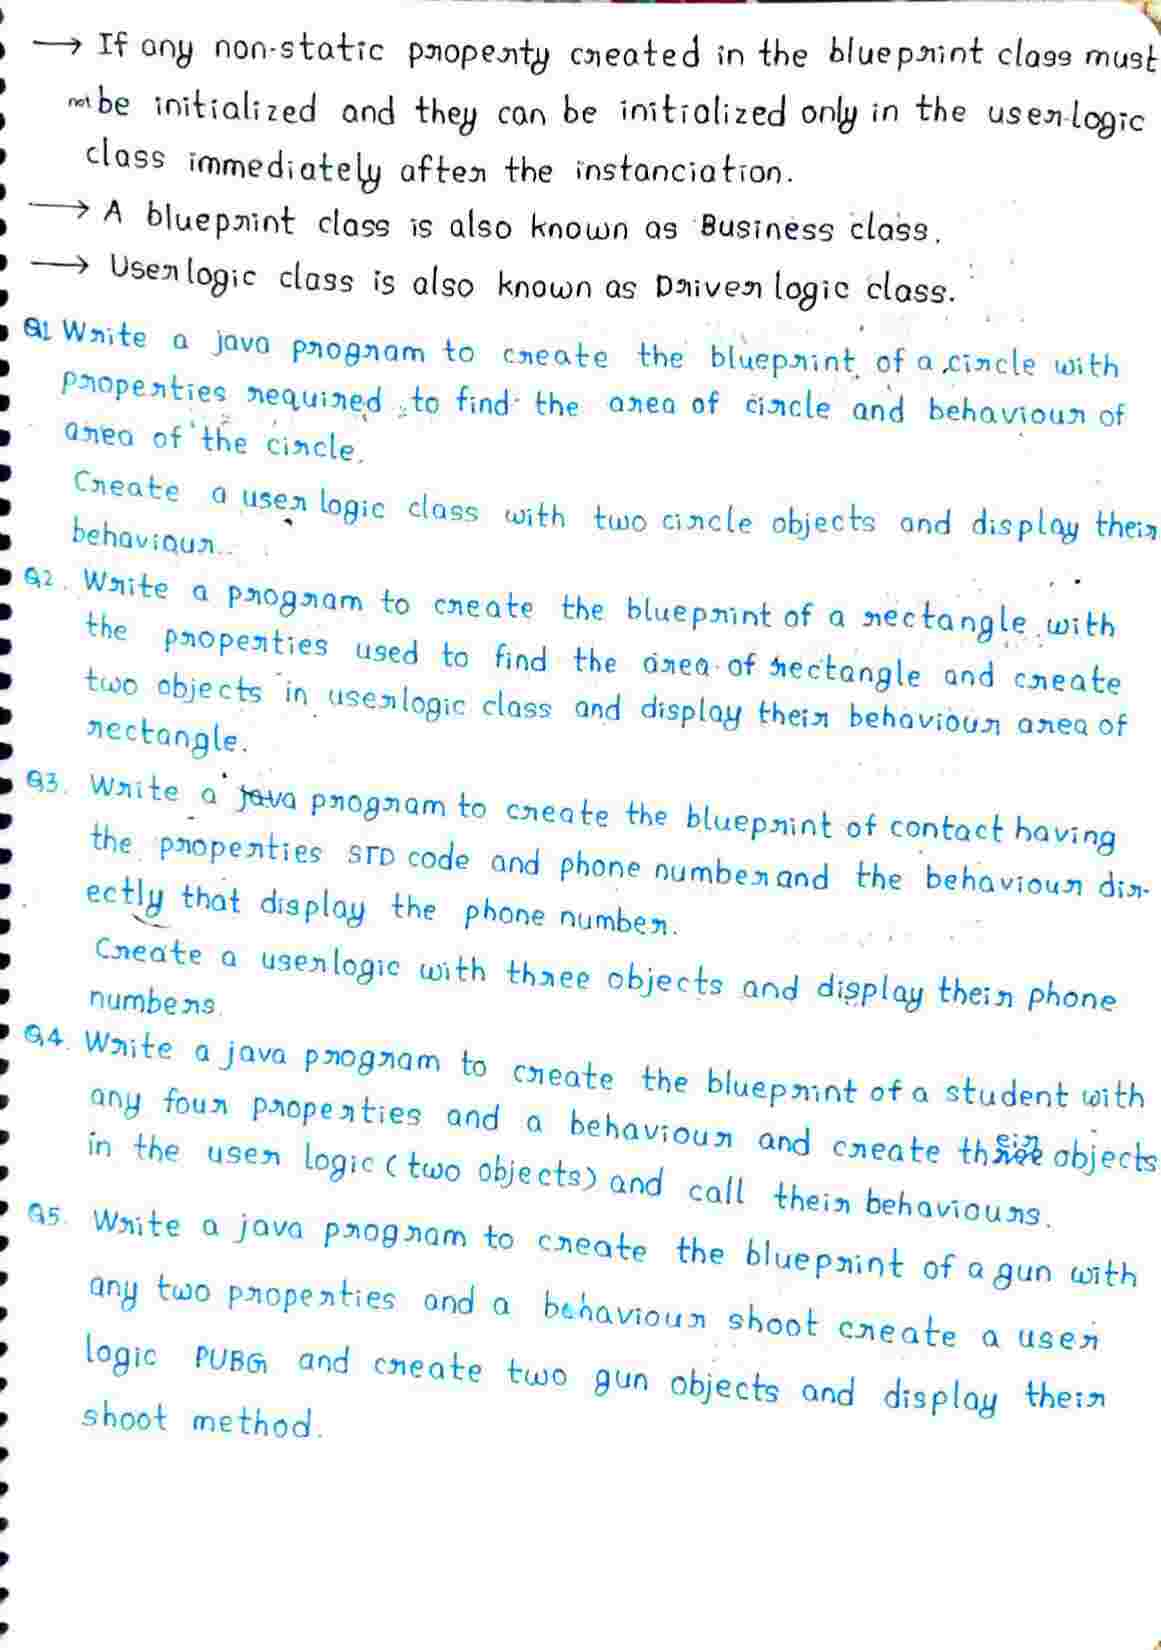 → If any non-static property created in the blueprint class must
not be initialized and they can be initialized only in the user-logic
class immediately after the instanciation.
→ A blueprint class is also known as Business class.
→ User logic class is also known as Driver logic class.
Q1 Write a java program to create the blueprint of a circle with
properties required to find the area of circle and behaviour of
area of the circle.
Create a user logic class with two circle objects and display their
behaviour..
Q2. Write a program to create the blueprint of a rectangle with
the properties used to find the area of rectangle and create
two objects in userlogic class and display their behaviour area of
rectangle.
Q3. Write a java program to create the blueprint of contact having
the properties STD code and phone number and the behaviour dir-
ectly that display the phone number.
Create a userlogic with three objects and display their phone
numbers.
Q4. Write a java program to create the blueprint of a student with
any four properties and a behaviour and create their objects
in the user logic (two objects) and call their behaviours.
Q5. Write a java program to create the blueprint of a gun with
any two properties and a behaviour shoot create a user
logic PUBG and create two gun objects and display their
shoot method.